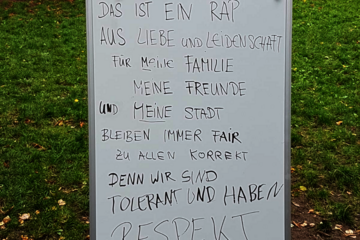 DAS IST EIN RAP
AUS LIEBE UND LEIDENSCHAFT
FÜR MEINE FAMILIE
MEINE FREUNDE
UND MEINE STADT
BLEIBEN IMMER FAIR
ZU ALLEN KORREKT
DENN WIR SIND
TOLERANT UND HABEN
RESPEKT